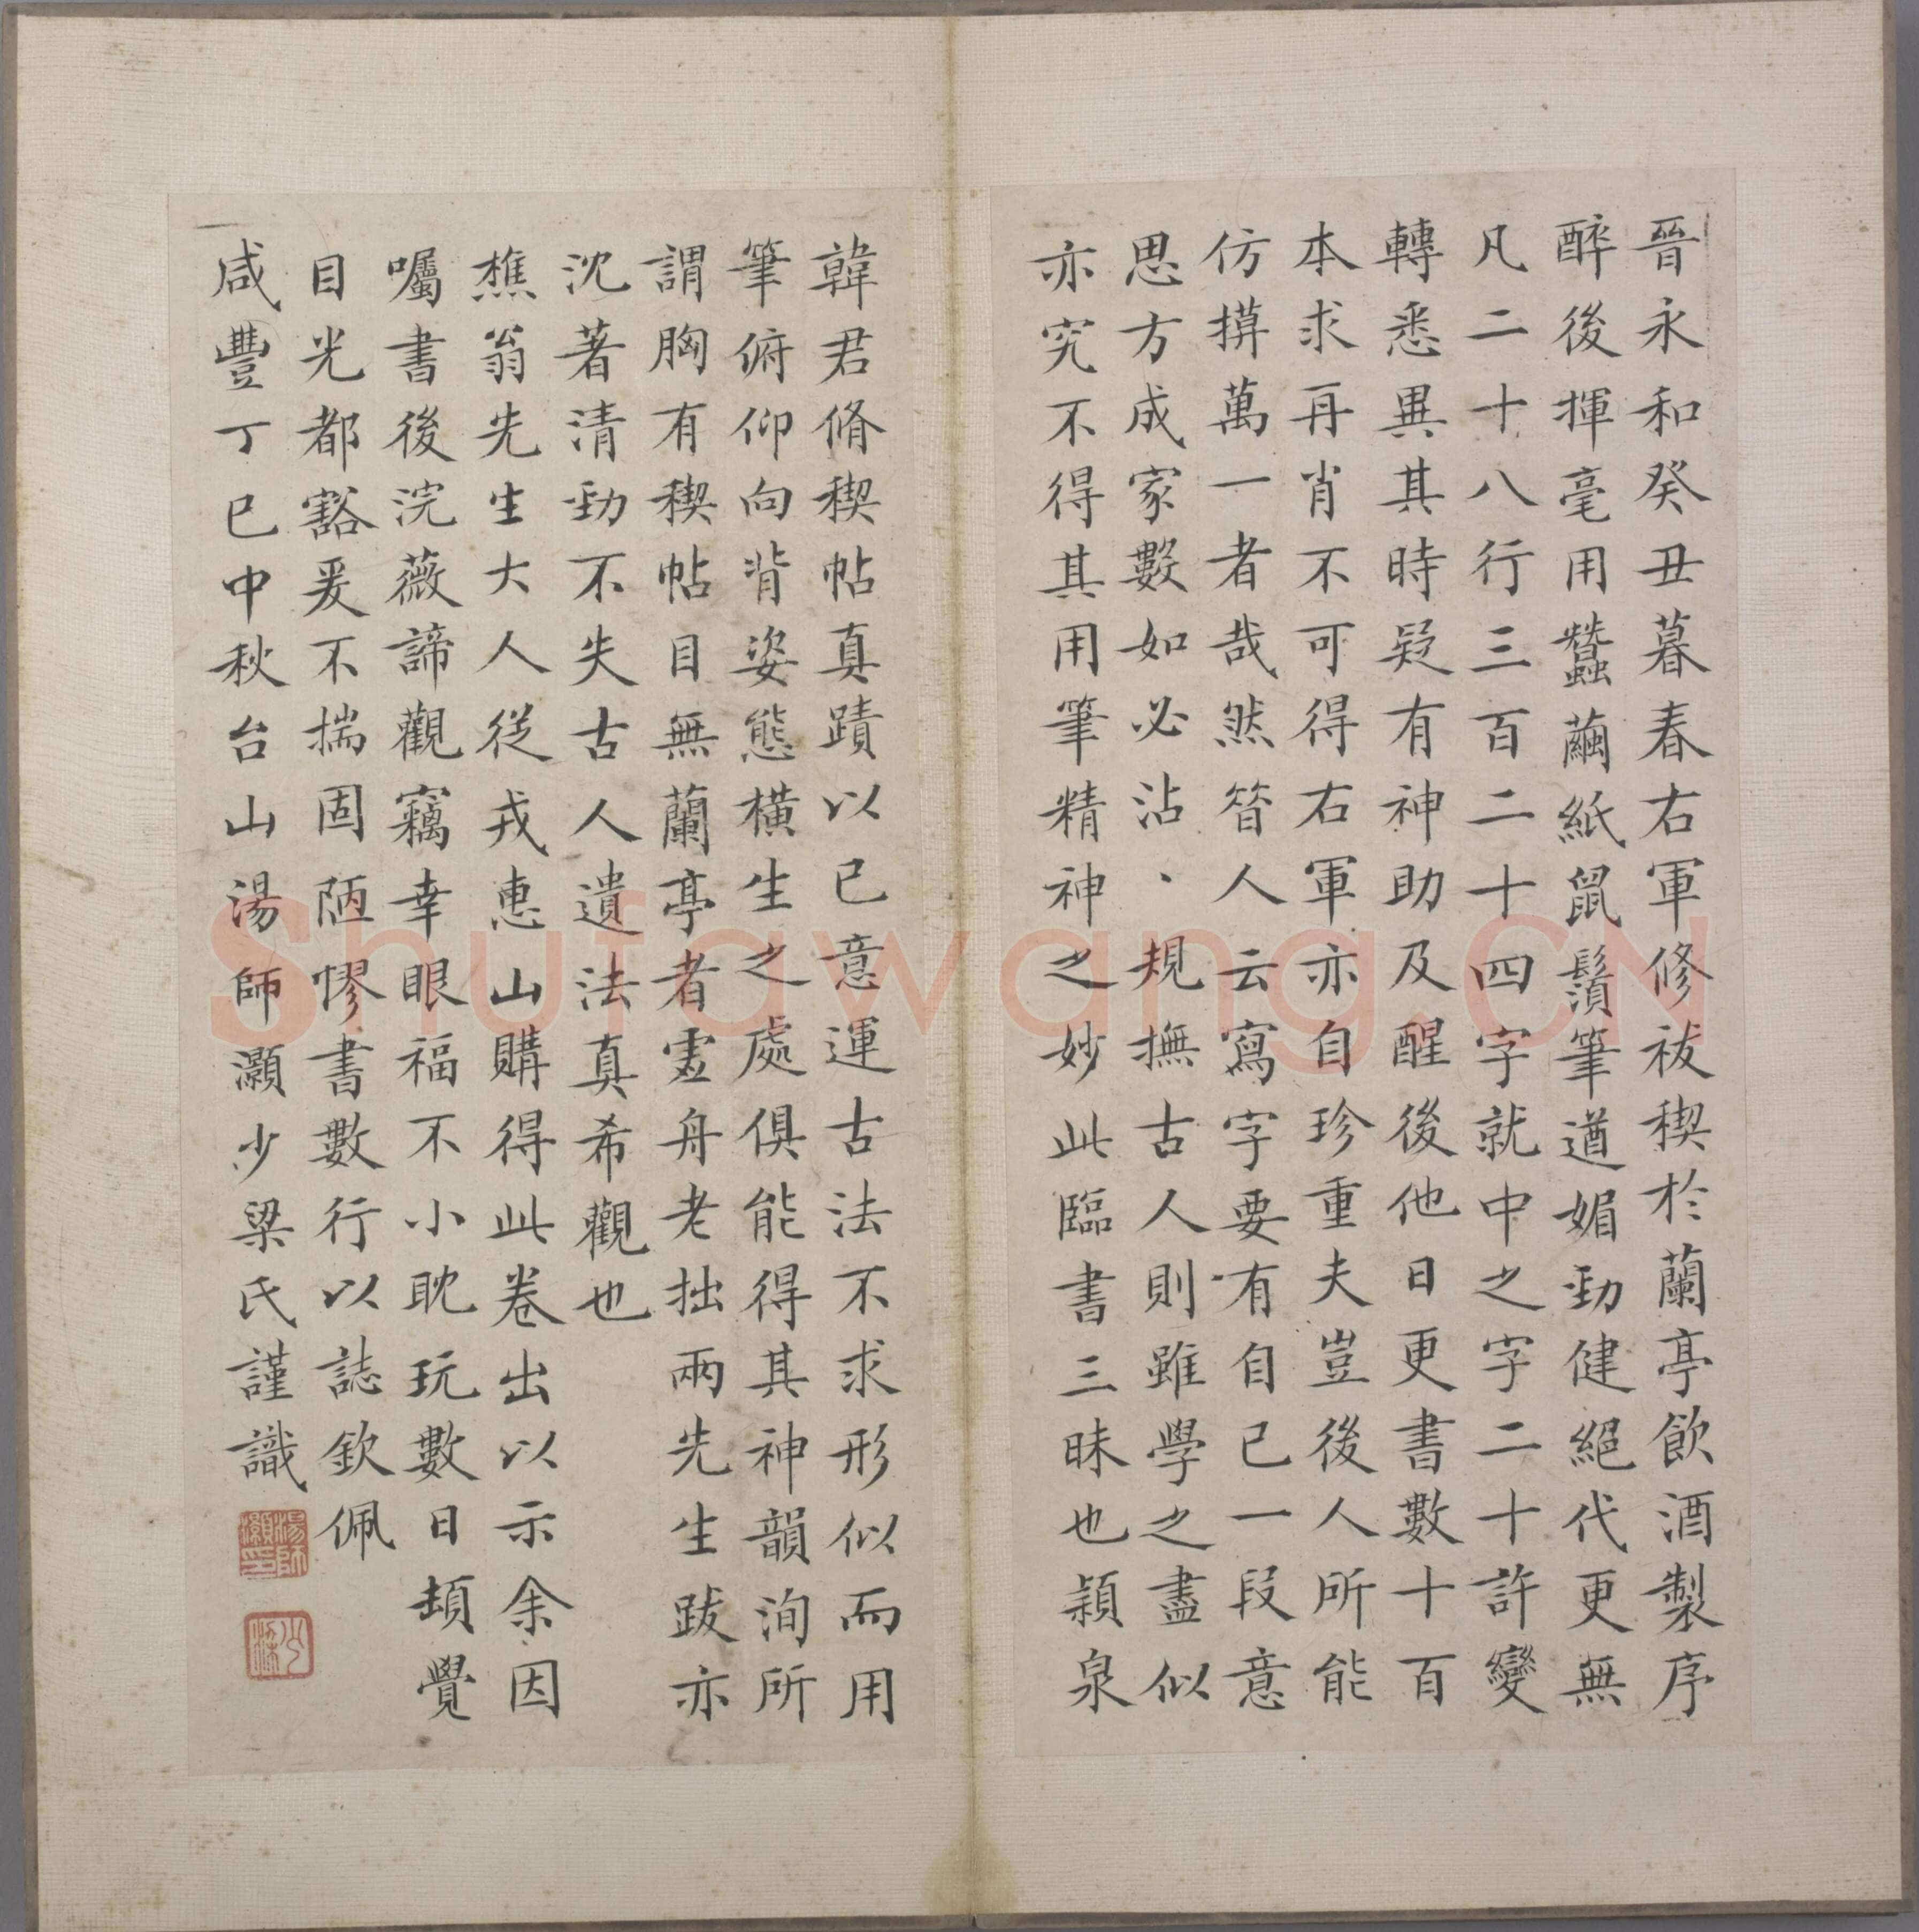 晉永和癸丑暮春右軍修祓禊於蘭亭飲酒製序
醉後揮毫用蠶繭紙鼠鬚筆遒媚勁健絕代更無
凡二十八行三百二十四字就中之字二十許變
轉悉異其時疑有神助及醒後他日更書數十百
本求再肖不可得右軍亦自珍重夫豈後人所能
仿摹萬一者哉然昝人云寫字要有自己一段意
思方成家數如必沾、規撫古人則雖學之盡似
亦究不得其用筆精神之妙此臨書三昧也潁泉
韓君脩禊帖真蹟以已意運古法不求形似而用
筆俯仰向背姿態橫生之處俱能得其神韻洵所
謂胸有稧帖目無蘭亭者虛舟老拙兩先生跋亦
沈著清勁不失古人遺法真希觀也
樵翁先生大人從戎惠山購得此卷出以示余因
囑書後浣薇諦觀竊幸眼福不小耽玩數日頓覺
目光都豁爰不揣固陋憀書數行以誌欽佩
咸豐丁巳中秋台山湯師灝少梁氏謹識
湯師灝印
少梁
Shufawang.CN